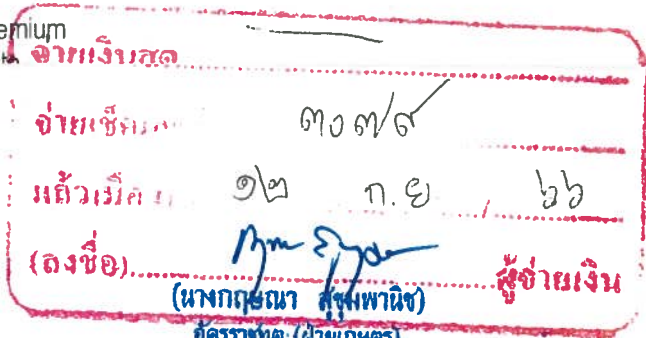 emium
จ่ายเงินสด
จ่ายเช็ค
แล้วเมื่อ ๑๒ ก.ย ๖๖
(ลงชื่อ) ผู้จ่ายเงิน
(นางกฤษณา สุขุมพานิช)
อัครราชทูต (ฝ่ายเกษตร)